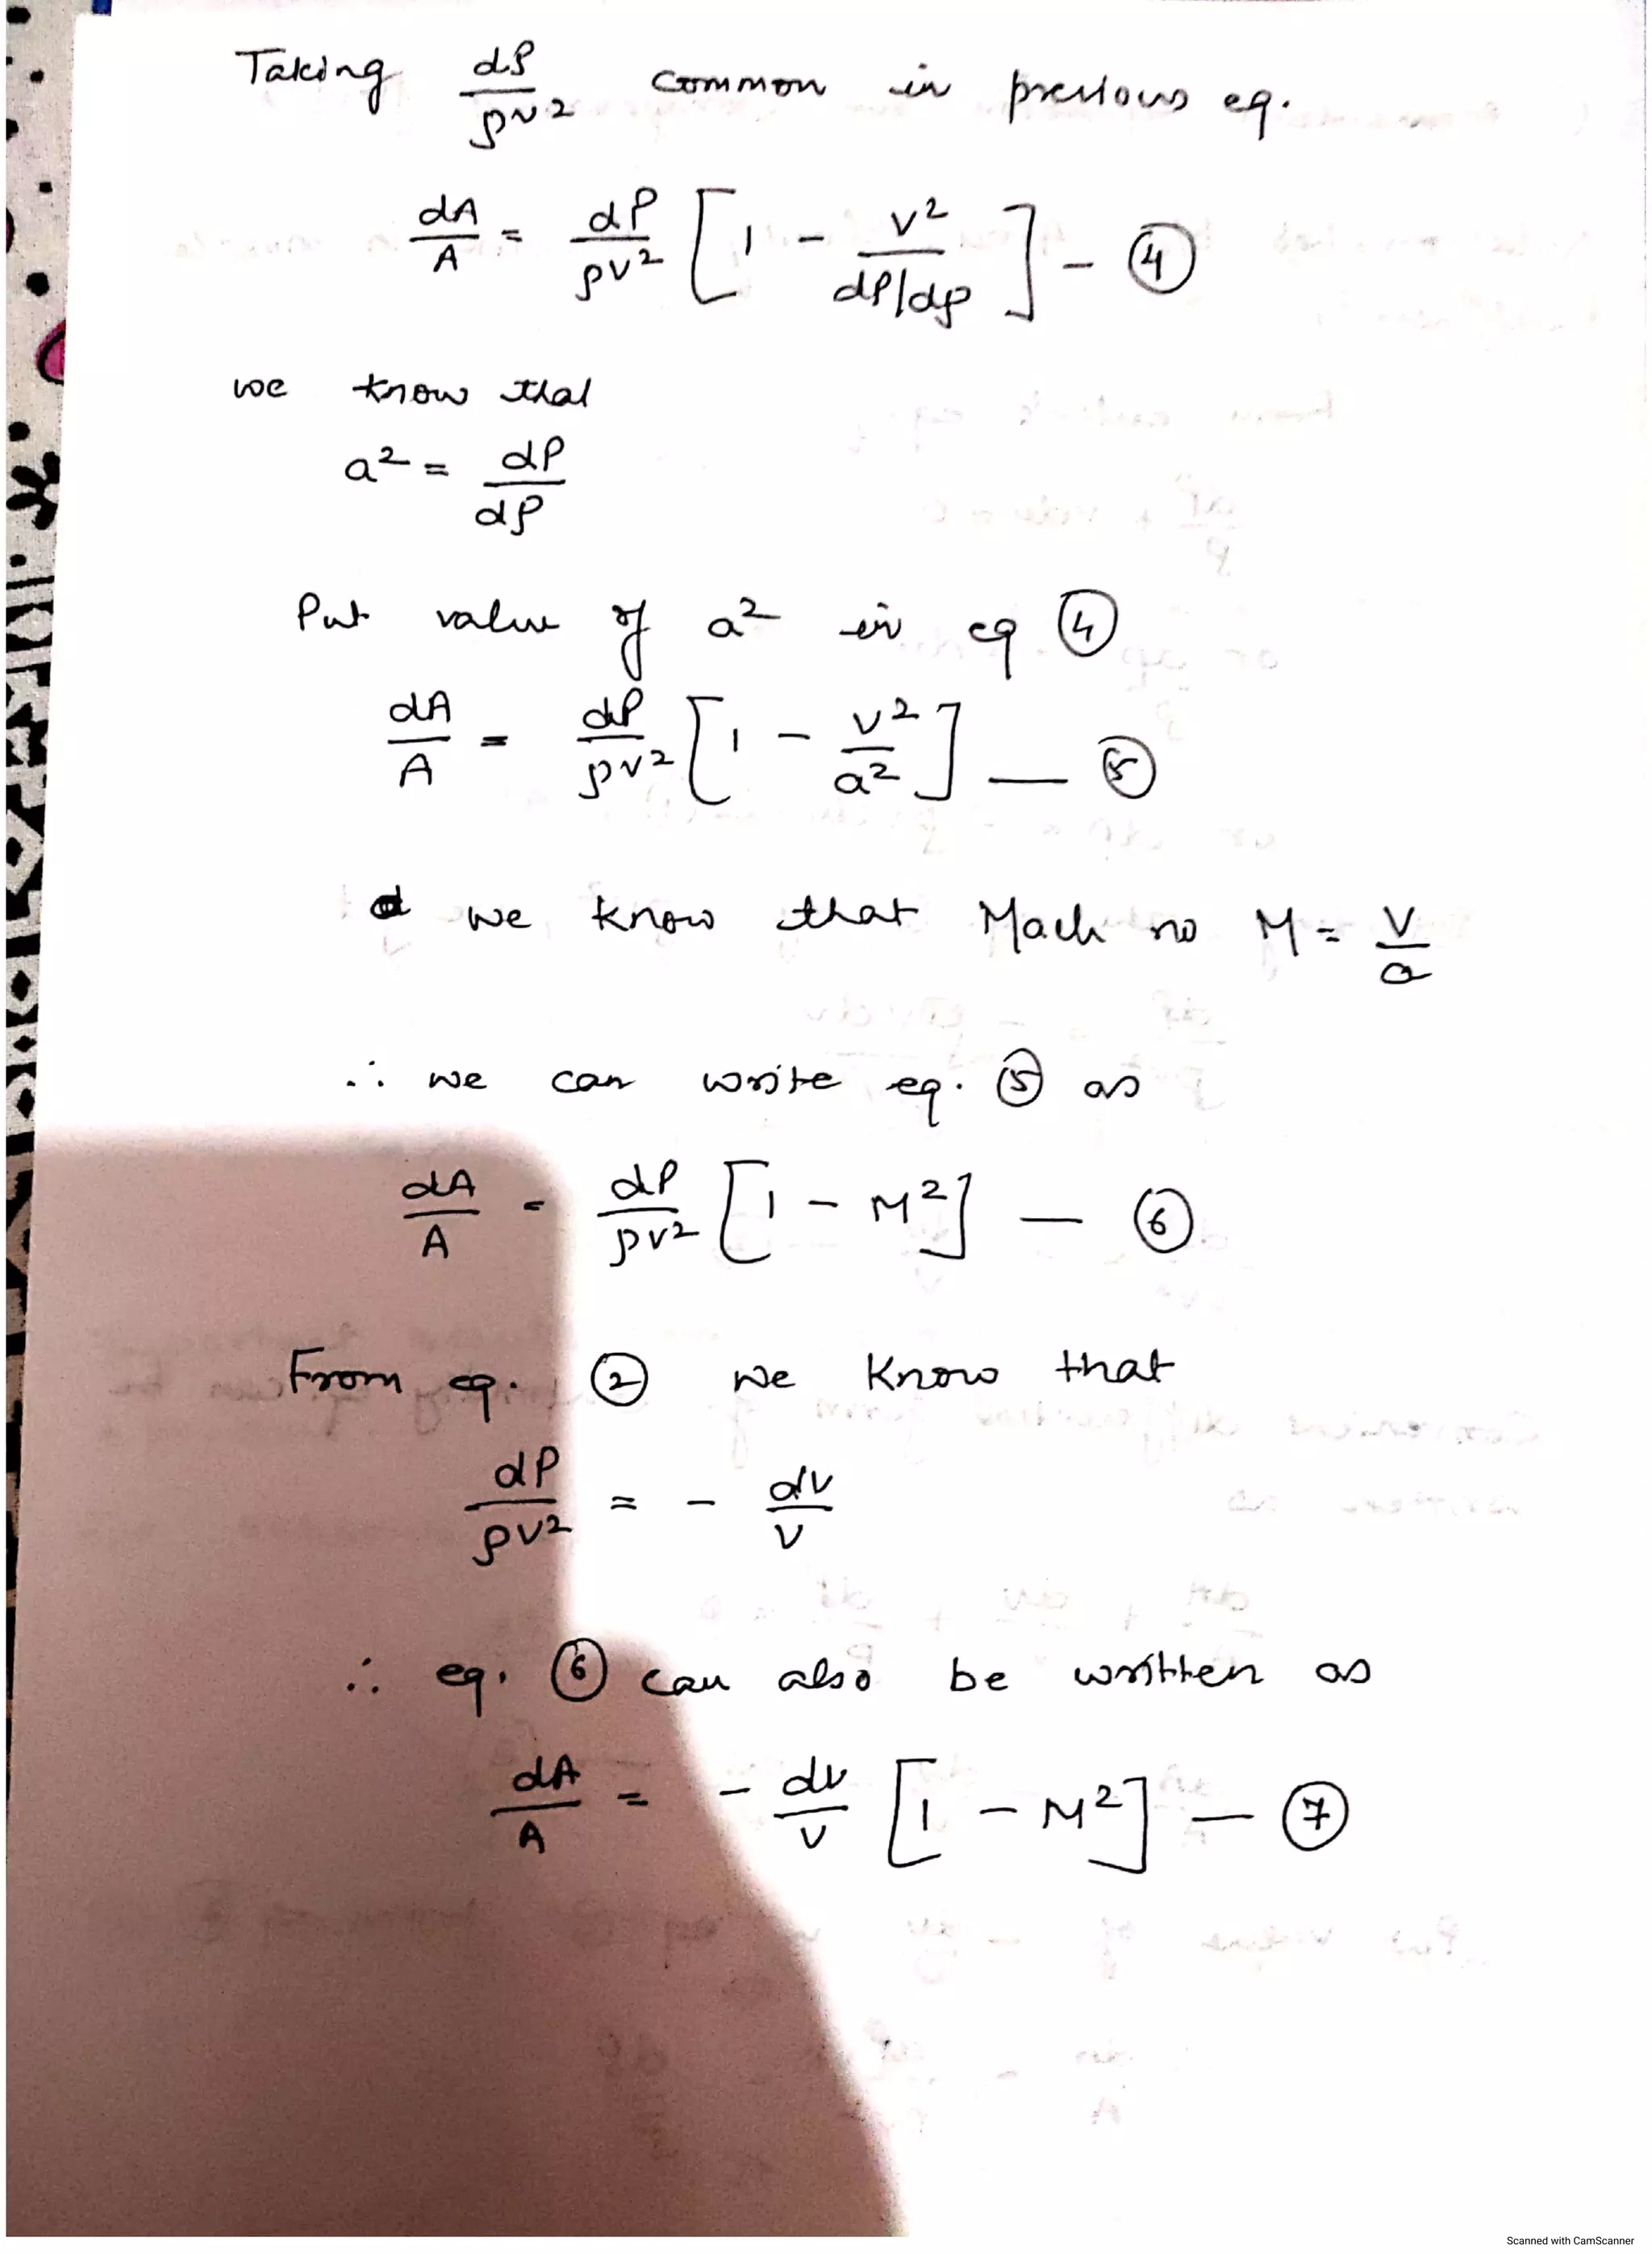 Taking dP/ρv² common in previous eq.
dA/A = dP/ρv² [1 - v²/dP/dρ] - ④
we know that
a² = dP/dρ
Put value of a² in eq ④
dA/A = dP/ρv² [1 - v²/a²] — ⑤
we know that Mach no M = v/a
∴ we can write eq. ⑤ as
dA/A = dP/ρv² [1 - M²] — ⑥
From eq. ② we know that
dP/ρv² = - dv/v
∴ eq. ⑥ can also be written as
dA/A = - dv/v [1 - M²] — ⑦
Scanned with CamScanner